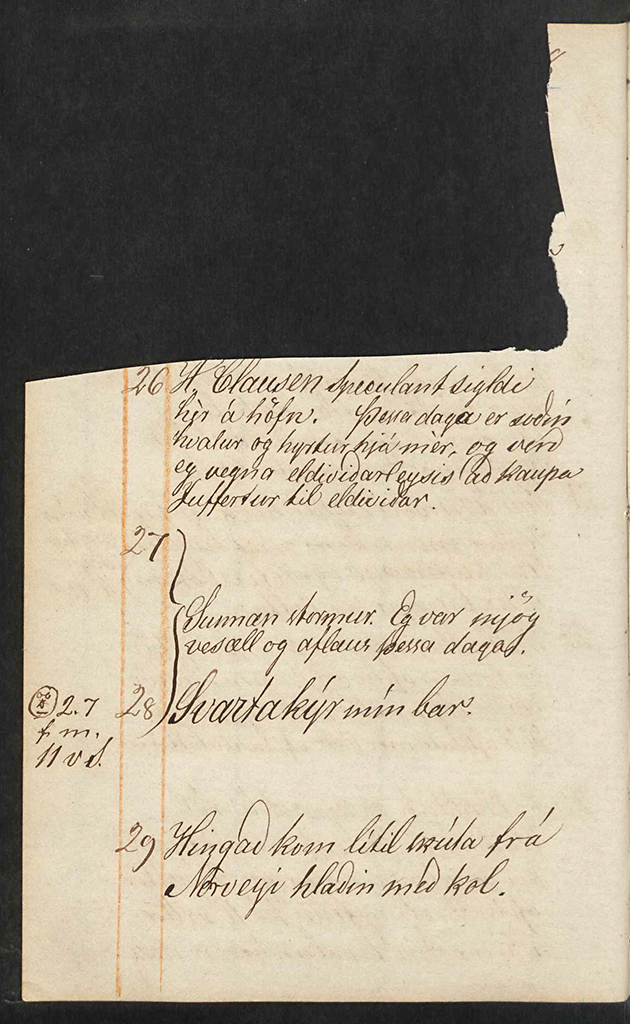 26 H. Clausen speculant sigldi
hér á höfn. Þessa daga er soðin
hvalur og hyrtur hjá mér, og verð
eg vegna eldividarleysis að kaupa
Juffertur til eldividar.
27
Sunnan stormur. Eg var mjög
vesæll og aflaus þessa daga.
2.7 28 Svartakýr mín bar.
f. m.
11 v S.
29 Hingað kom lítil skúta frá
Norvegi hladin með kol.